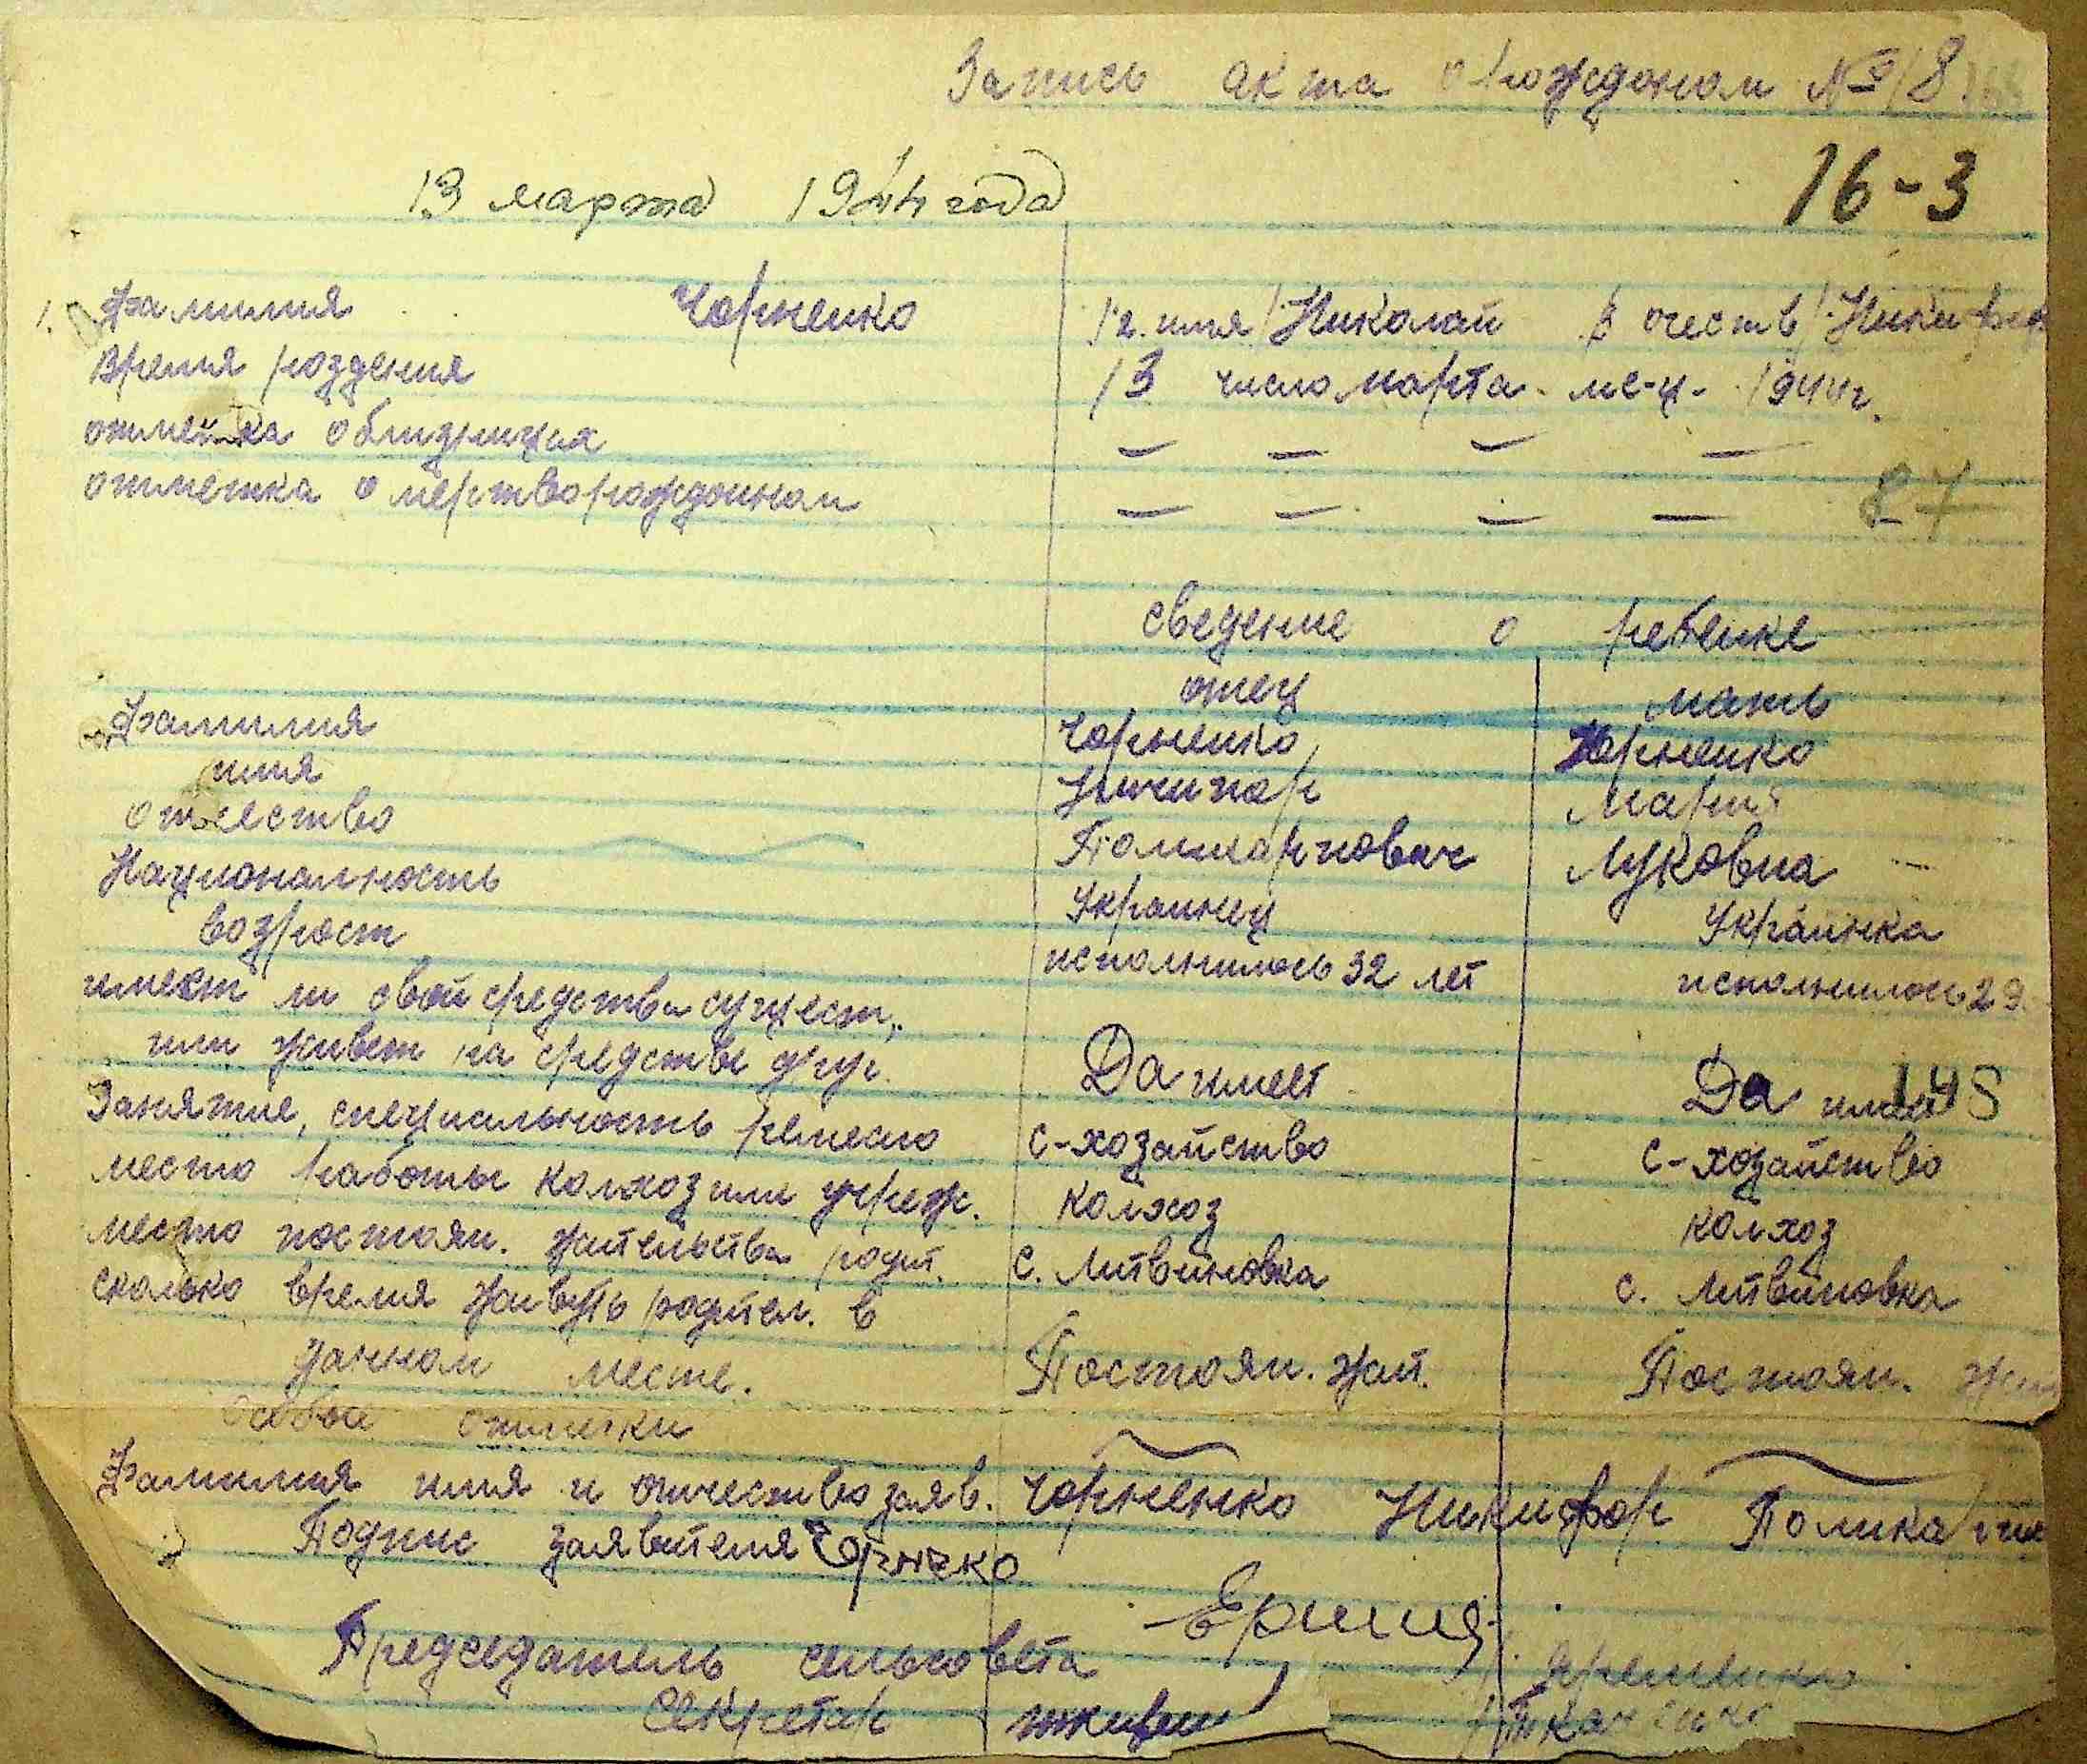 Запись акта о рождоном № 18
13 марта 1944 года
16-3
1. Фамилия Чорненко 1/2. имя / Николай / очеств / Никифор
Время роздения 13 число марта. ме-ц. 1944г.
отметка о близницах — — — —
отметка о мертворождонном — — — —
87
сведение о ребенке
отец мать
Фамилия Чорненко Чорненко
имя Ничипор Мария
отчество Поликарпович Луковна —
Национальность Украинец Украинка
возрост исполнилось 32 лет исполнилось 29.
имеет ли свои средства сущест,
или живет на средства друг. Да имеет Да имеет
145
Занятие, специальность ремесло с-хозайство с-хозайство
место работы колхоз или учреж. колхоз колхоз
место постоян. жительства родит. с. Литвиновка с. Литвиновка
сколько время живуть родител. в
данном месте. Постоян. жит. Постоян. жит
Особые отметки
Фамилия имя и отчество заяв. Чорненко Никифор Поликарпов
Подпис заявителя Чорненко
Председатель сельсовета Яременко
Секретар Ткаченко